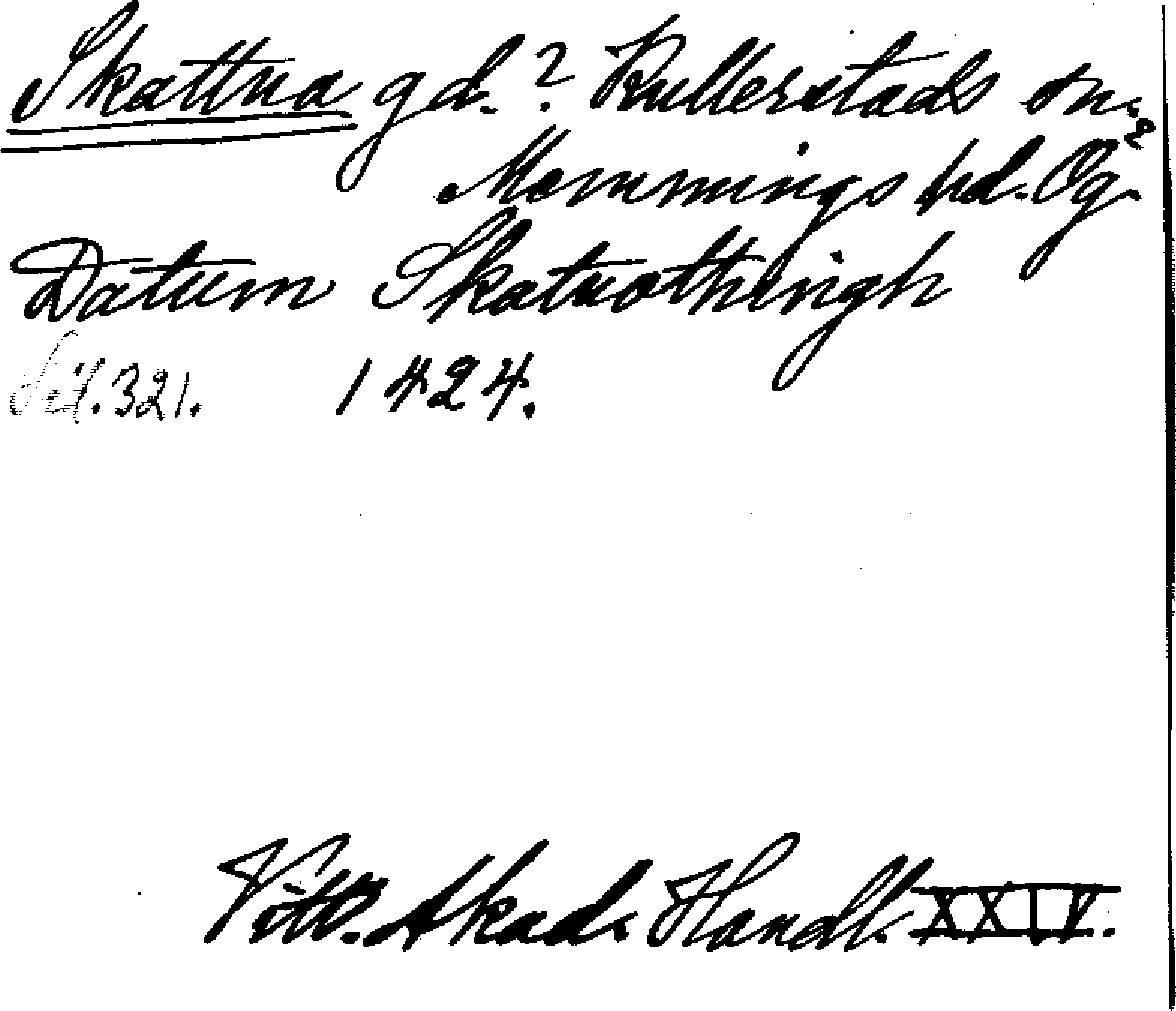 Skattna gd.? Kullerstads sn.?
Memmings hd. Ög.
Datum Skatnothingh
Sid. 321. 1424.
Vitt. Akad. Handl. XXIV.